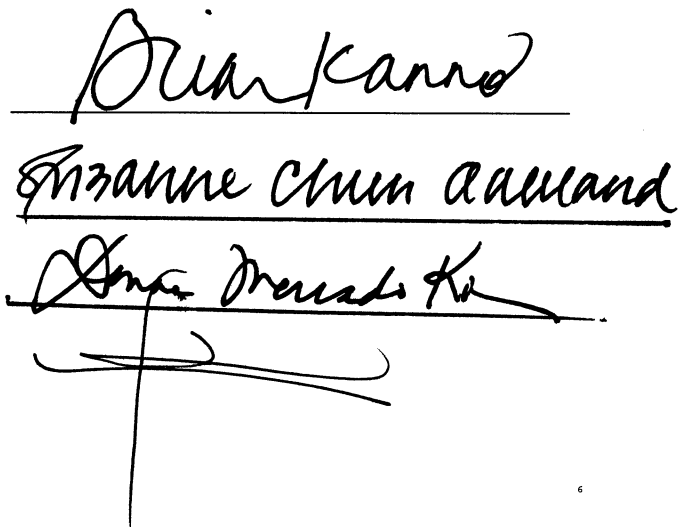 Brian Kanno
Suzanne Chun Oakland
Donna Mercado Kim
6